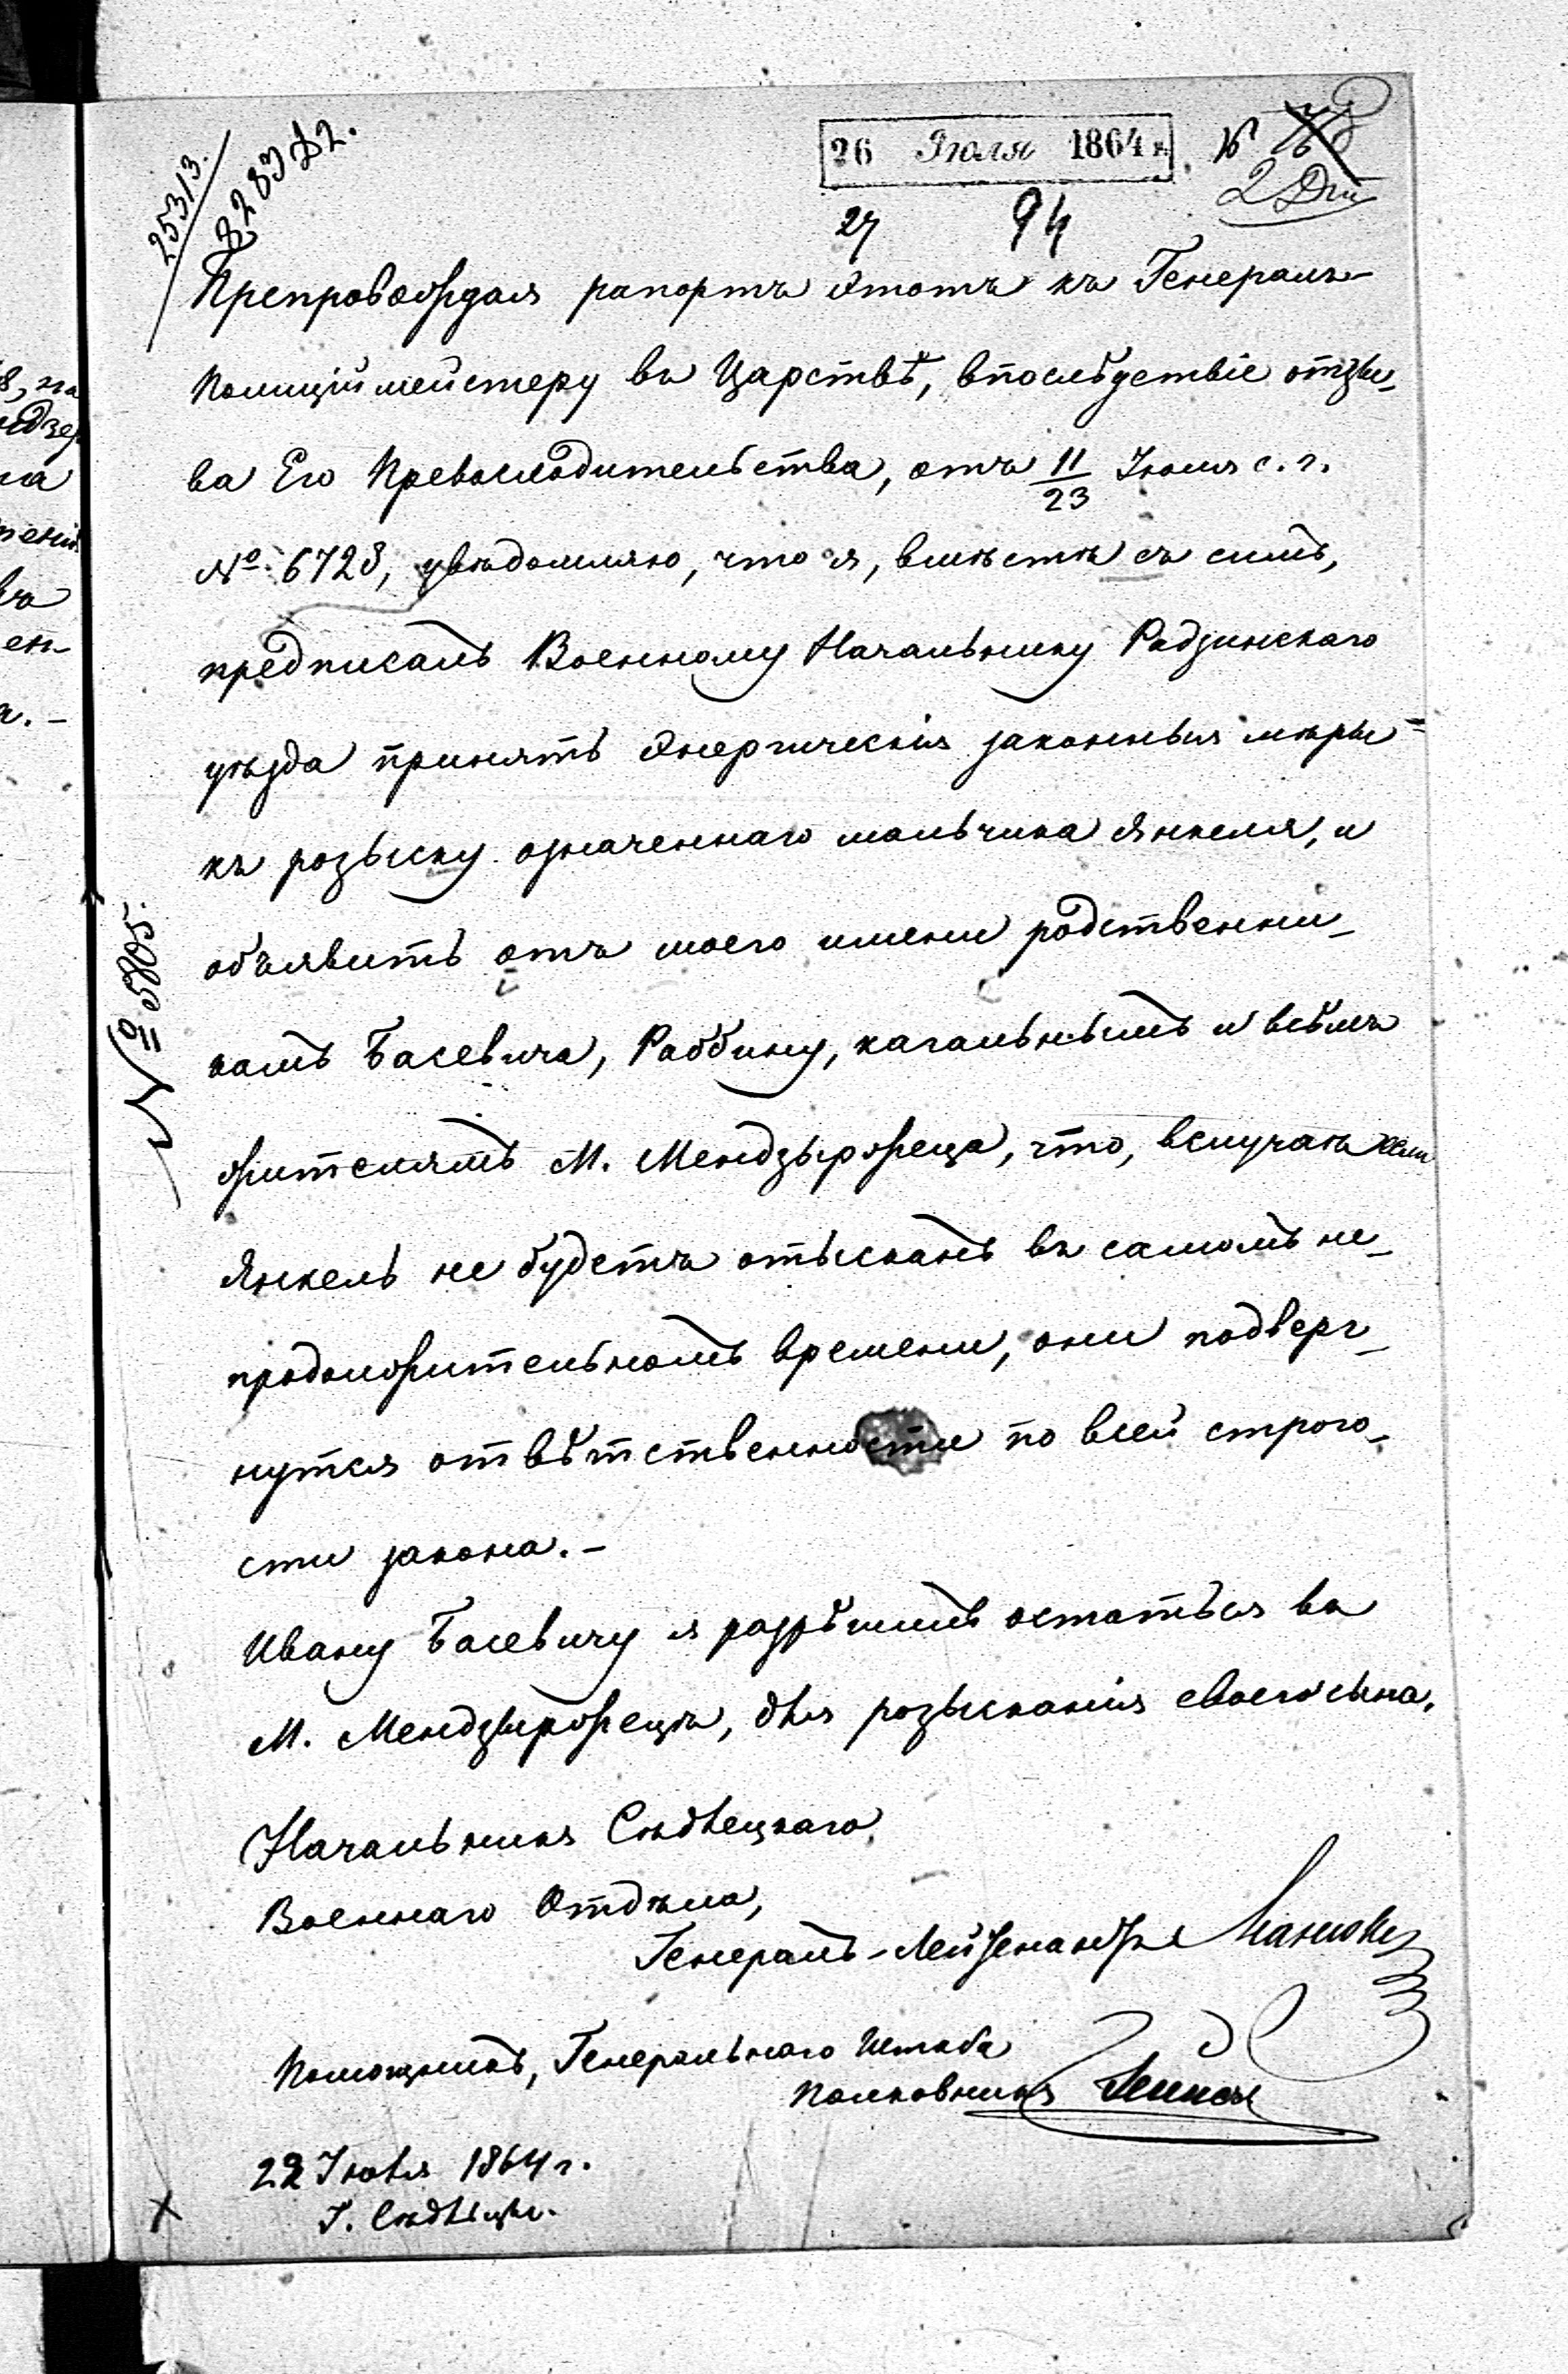 25313.
8283 Д2.
26 Июля 1864 г.
27 94
Препровождая рапортъ этотъ къ Генералъ-
Полиціймейстеру въ Царствѣ, впослѣдствіе отзы-
ва Его Превосходительства, отъ 11/23 Іюля с. г.
№ 6728, увѣдомляю, что я, вмѣстѣ съ симъ,
предписалъ Военному Начальнику Радзинскаго
уѣзда принять энергическія законныя мѣры
къ розыску означеннаго мальчика Янкеля, и
объявить отъ моего имени родственни-
камъ Басевича, Раввину, кагальнымъ и всѣмъ
жителямъ М. Мендзыржеца, что, вслучаѣ если
Янкель не будетъ отысканъ въ самомъ не-
продолжительномъ времени, они подверг-
нутся отвѣтственности по всей строго-
сти закона. –
Ивану Басевичу я разрѣшилъ остаться въ
М. Мендзыржецѣ, для розысканія своего сына.
Начальникъ Сѣдлецкаго
Военнаго Отдѣла,
Генералъ-Лейтенантъ
Помощникъ, Генеральнаго Штаба
Полковникъ
22 Іюля 1864 г.
Г. Сѣдлецъ.
№ 5805.